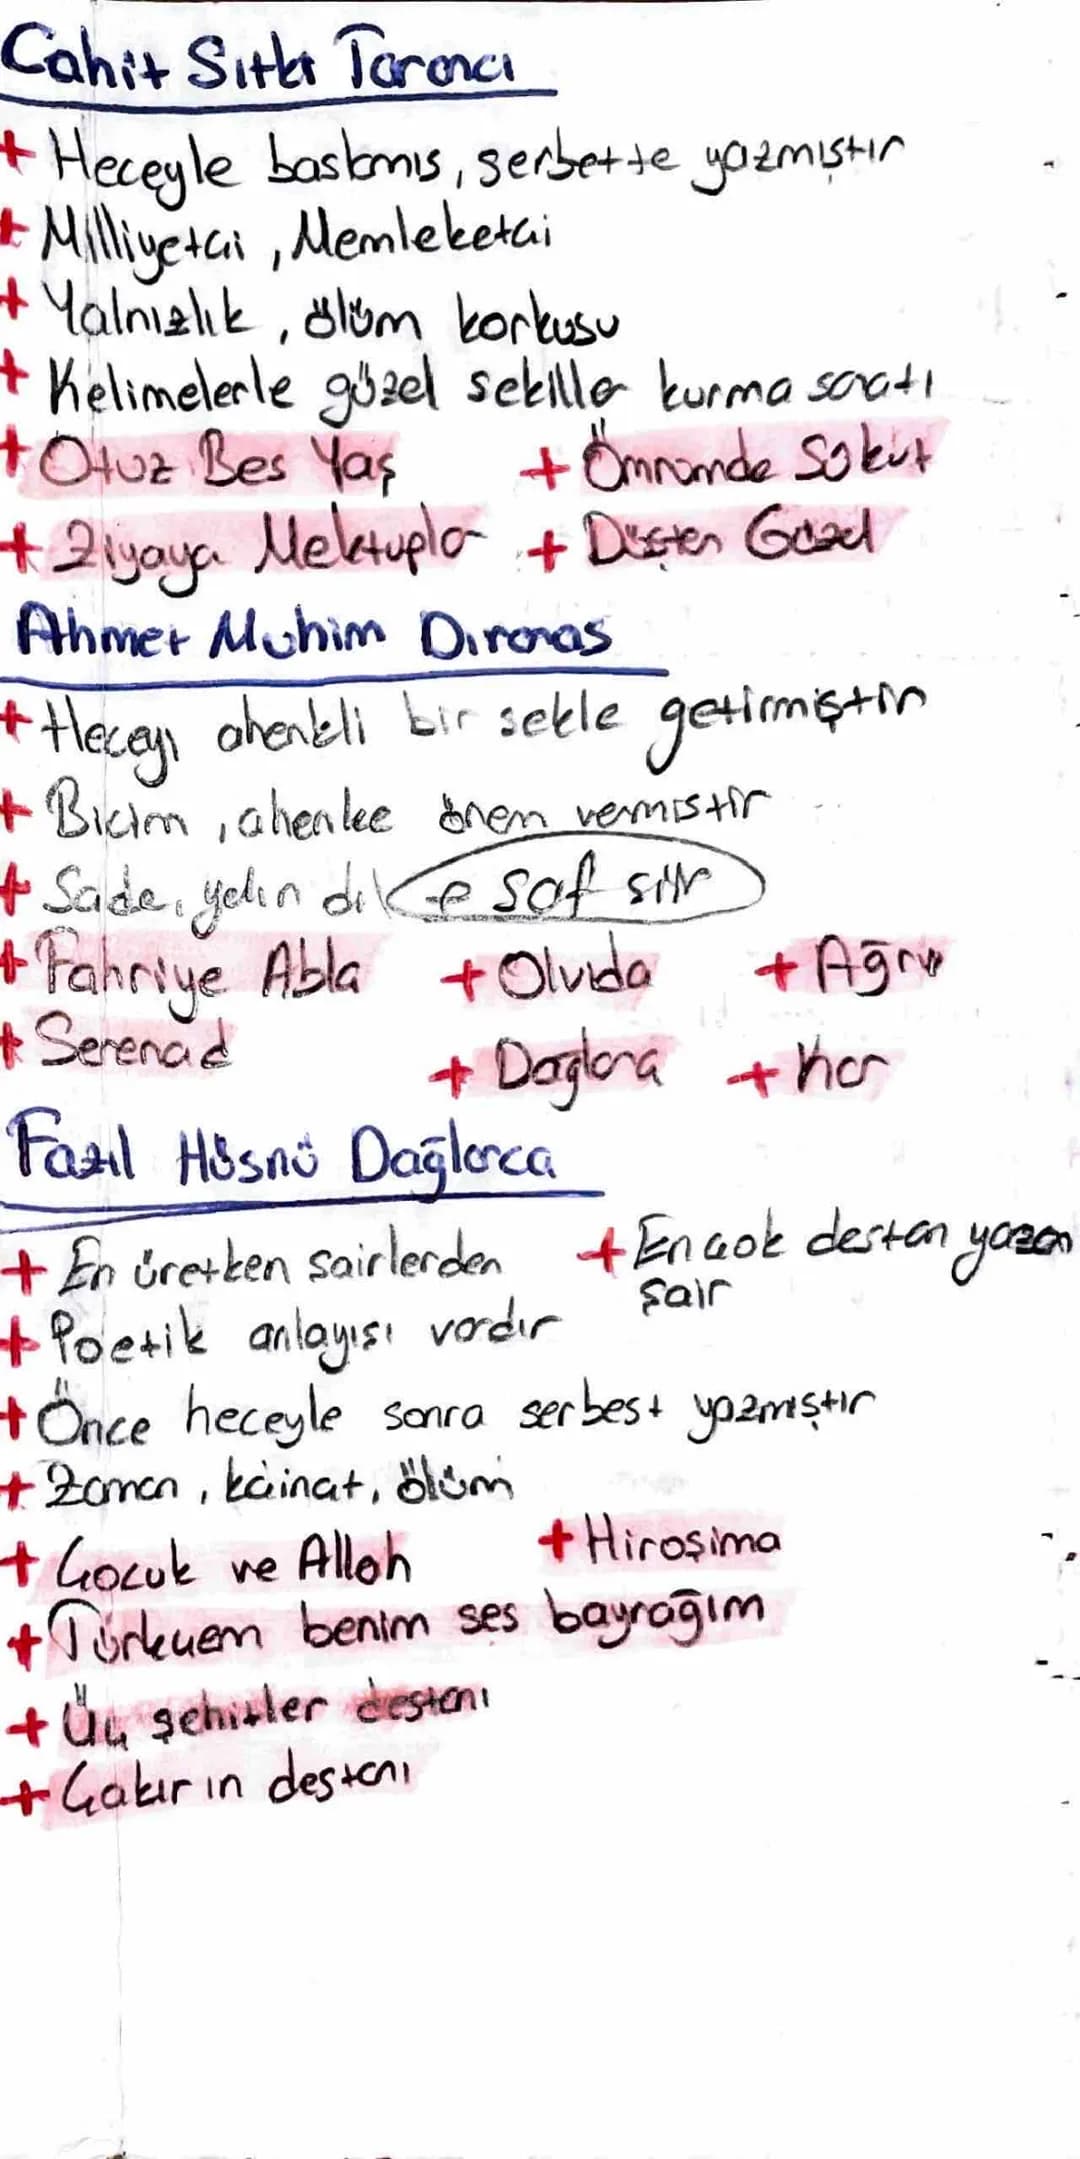 Cahit Sıtkı Tarancı
+ Heceyle baslamıs, serbestte yazmıştır
+ Milliyetçi, Memleketçi
+ Yalnızlık, ölüm korkusu
+ Kelimelerle güzel sekiller kurma sanatı
+ Otuz Bes Yaş + Ömrümde Sükut
+ Ziyaya Mektuplar + Düşten Güzel
Ahmet Muhim Dıranas
+ Heceyı ahenkli bir sekle getirmiştir
+ Bicim, ahenke önem vermıstir
+ Sade, yalın dil → saf siir
+ Fahriye Abla + Olvıda + Ağrı
+ Serenad + Daglara + Kar
Fazıl Hüsnü Dağlarca
+ En üretken sairlerden + En çok destan yazan şair
+ Poetik anlayısı vardır
+ Önce heceyle sonra serbest yazmıştır
+ Zaman, kainat, ölüm
+ Çocuk ve Allah + Hiroşima
+ Türkçem benim ses bayrağım
+ Üç şehitler destanı
+ Çakır ın destanı